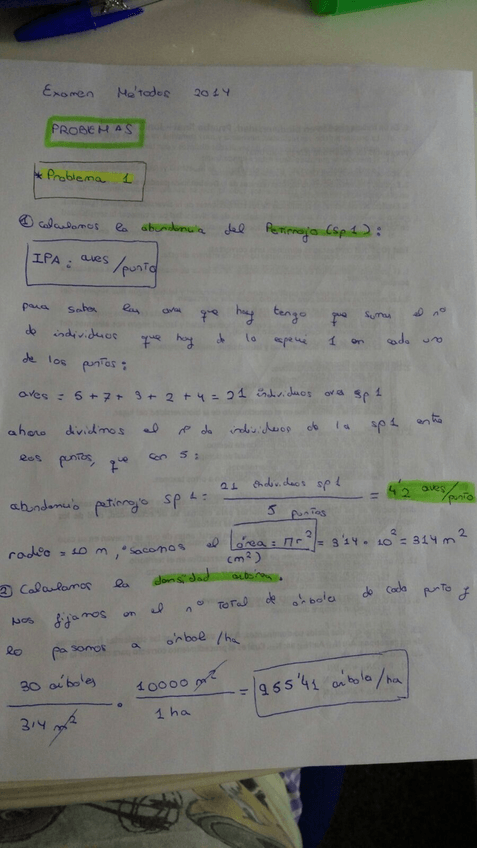 Examen Métodos 2014
PROBEMAS
* Problema 1
① Calculamos la abundancia del Petirrojo (sp 1):
IPA: aves/punto
para saber las aves que hay tengo que sumar el nº
de individuos que hay de la especie 1 en cada uno
de los puntos:
aves = 5 + 7 + 3 + 2 + 4 = 21 individuos aves sp 1
ahora dividimos el nº de individuos de la sp 1 entre
los puntos, que son 5:
abundancia petirrojo sp 1 = 21 individuos sp 1 / 5 puntos = 4'2 aves/punto
radio = 10 m, sacamos el área = πr² = 3'14 · 10² = 314 m²
(m²)
② Calculamos la densidad arborea.
Nos fijamos en el nº total de árboles de cada punto y
lo pasamos a árbol/ha
30 árboles / 314 m² · 10000 m² / 1 ha = 955'41 árboles/ha